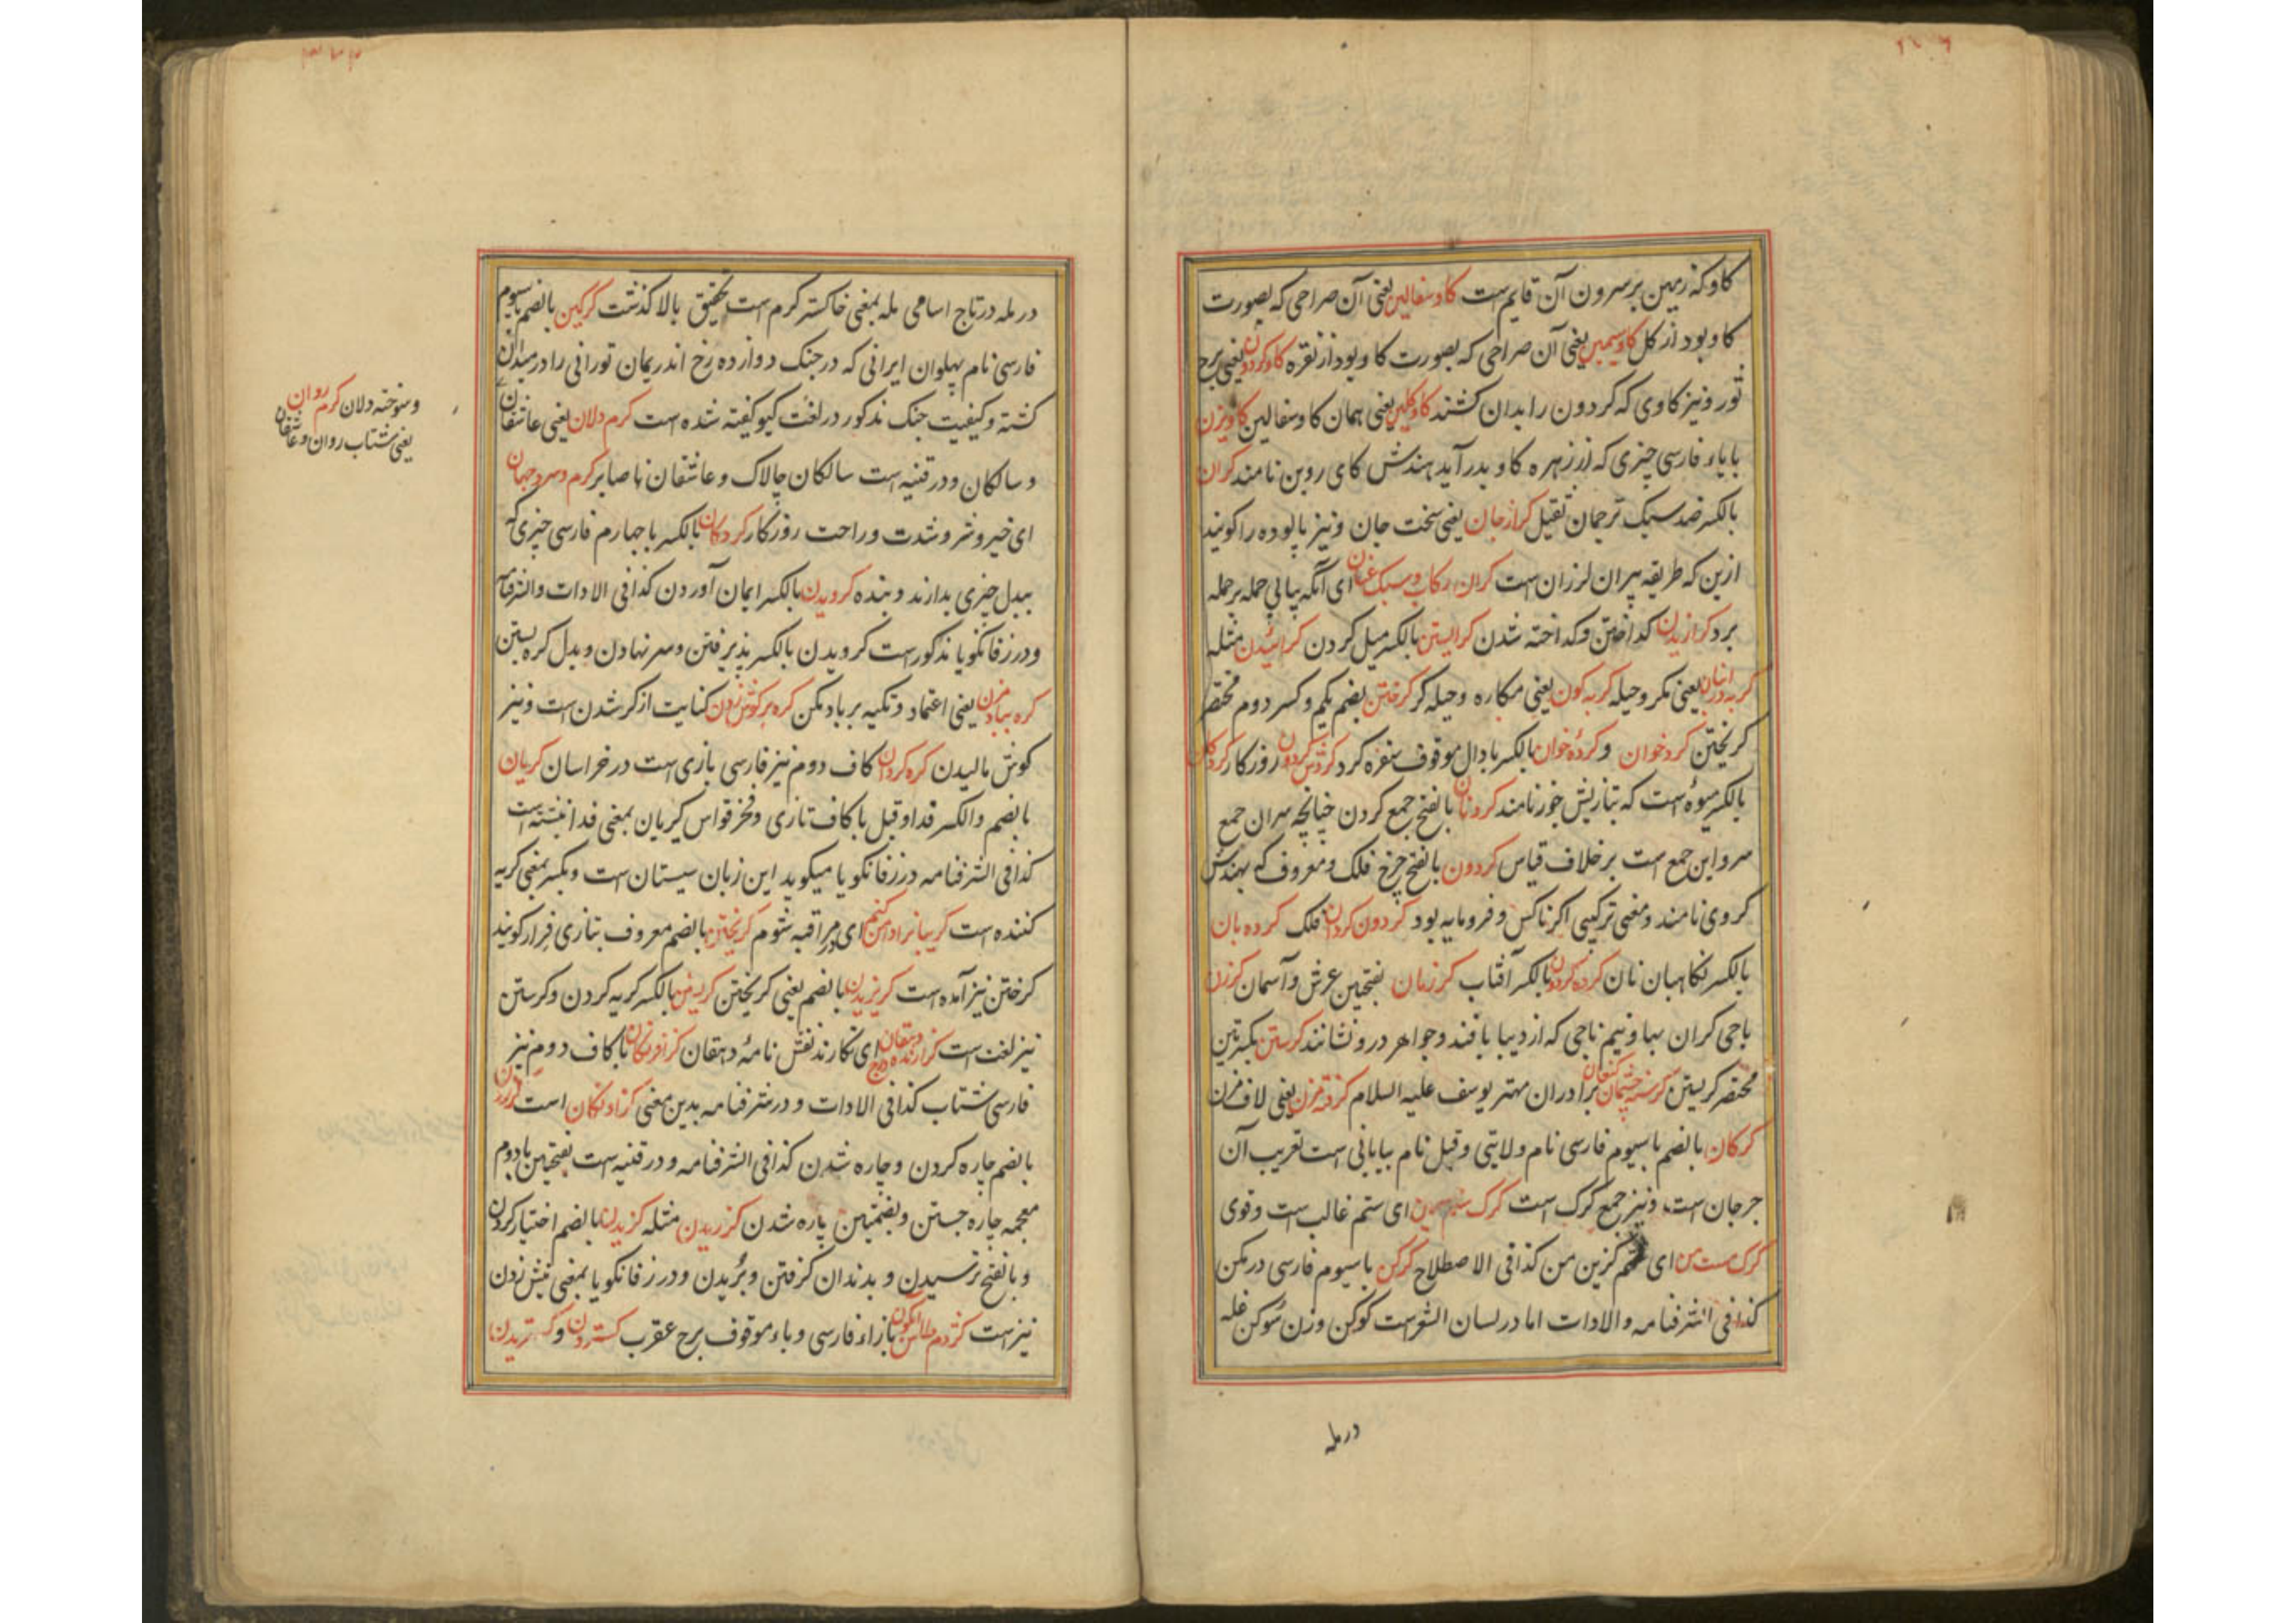 کاو که زمین بر سرون آن قایم است کاو سفالین یعنی آن صراحی که بصورت
کاو بود از کل کاو سیمین یعنی آن صراحی که بصورت کاو بود از نقره کاو کردون یعنی برج
ثور و نیز کاوی که کردون را بدان کشند کاو کلین یعنی همان کاو سفالین کاویزن
با یاء فارسی چیزی که از زهره کاو بدر آید هندش کای روین نامند کران
بالکسر ضد سبک ترجمان ثقیل کران جان یعنی سخت جان و نیز پالوده را کویند
ازین که طریقه پیران لرزان است کران رکاب و سبک عنان ای آنکه پیاپی حمله بر حمله
برد کرازیدن کداختن و کداخته شدن کرایستن بالکسر میل کردن کرائیدن مثله
کربه در انبان یعنی مکر و حیله کربه کون یعنی مکاره و حیله کر کرختن بضم یکم و کسر دوم مختصر
کریختن کردخوان و کرده خوان بالکسر با دال موقوف سفره کرد کردش کردون روزکار کردکان
بالکسر میوه است که بتازیش جوز نامند کردنان بالفتح جمع کردن چنانچه سران جمع
سر و این جمع است بر خلاف قیاس کردون بالفتح چرخ فلک و معروف که بهندش
کروی نامند و معنی ترکیبی اکر ناکس و فرومایه بود کردون کردان فلک کرده بان
بالکسر نکاهبان نان کرده کردون بالکسر آفتاب کرزمان بفتحین عرش و آسمان کرزن
باجی کران بها و نیم تاجی که از دیبا بافند و جواهر درو نشانند کرستن بکسرتین
مختصر کریستن کرسنه چشمان کنعان برادران مهتر یوسف علیه السلام کرفته مزن یعنی لاف مزن
کرکان بالضم با سیوم فارسی نام ولایتی و قیل نام بیابانی است تعریب آن
جرجان است و نیز جمع کرک است کرک ای ستم غالب است و قوی
کرک مست من ای کزین من کذا فی الاصطلاح کرکن با سیوم فارسی در مکن
کذا فی الشرفنامه والادات اما در لسان الشعراست کوکن وزن سوکن غله
درمله
در مله در تاج اسامی مله بمعنی خاکستر کرم است تحقیق بالا کذشت کرکین بالضم با سیوم
فارسی نام پهلوان ایرانی که در جنک دوازده رخ اندریمان تورانی را در میدان
کشته و کیفیت جنک مذکور در لغت کیو کفته شده است کرم دلان یعنی عاشقان
و سالکان و در قنیه است سالکان چالاک و عاشقان ناصابر کرم و سرد جهان
ای خیر و شر و شدت و راحت روزکار کردکان بالکسر با چهارم فارسی چیزی که
ببدل چیزی بدارند و بنده کرویدن بالکسر ایمان آوردن کذا فی الادات والشرفنامه
و در زفانکویا مذکور است کرویدن بالکسر پذیرفتن و سر نهادن و بدل کره بستن
کره بباد مزن یعنی اعتماد و تکیه بر باد مکن کره بر کوش زدن کنایت از کر شدن است و نیز
کوش مالیدن کره کردان کاف دوم نیز فارسی بازی است در خراسان کریان
بالضم والکسر فدا و قیل با کاف تازی و فخر قواس کریان بمعنی فدا نبشته است
کذا فی الشرفنامه در زفانکویا میکوید این زبان سیستان است و بکسر بمعنی کریه
کننده است کریبانرا دامن کنم ای در مراقبه شوم کریختن بالضم معروف بتازی فرار کویند
کرختن نیز آمده است کریزیدن بالضم یعنی کریختن کریستن بالکسر کریه کردن و کرستن
نیز لغت است کزارنده درج دهقان ای نکارنده نقش نامهٔ دهقان کزافرنکان با کاف دوم نیز
فارسی شتاب کذا فی الادات و در شرفنامه بدین معنی کزاونکان است کزرن
بالضم چاره کردن و چاره شدن کذا فی الشرفنامه و در قنیه است بفتحتین با دوم
معجمه چاره جستن و بضمتین پاره شدن کزریدن مثله کزیدن بالضم اختیار کردن
و بالفتح ترسیدن و بدندان کرفتن و بریدن و در زفانکویا بمعنی نیش زدن
نیز است کژدم بازاء فارسی و باء موقوف برج عقرب کستردن و کستریدن
و سوخته دلان کرم روان
یعنی شتاب روان و عاشقان